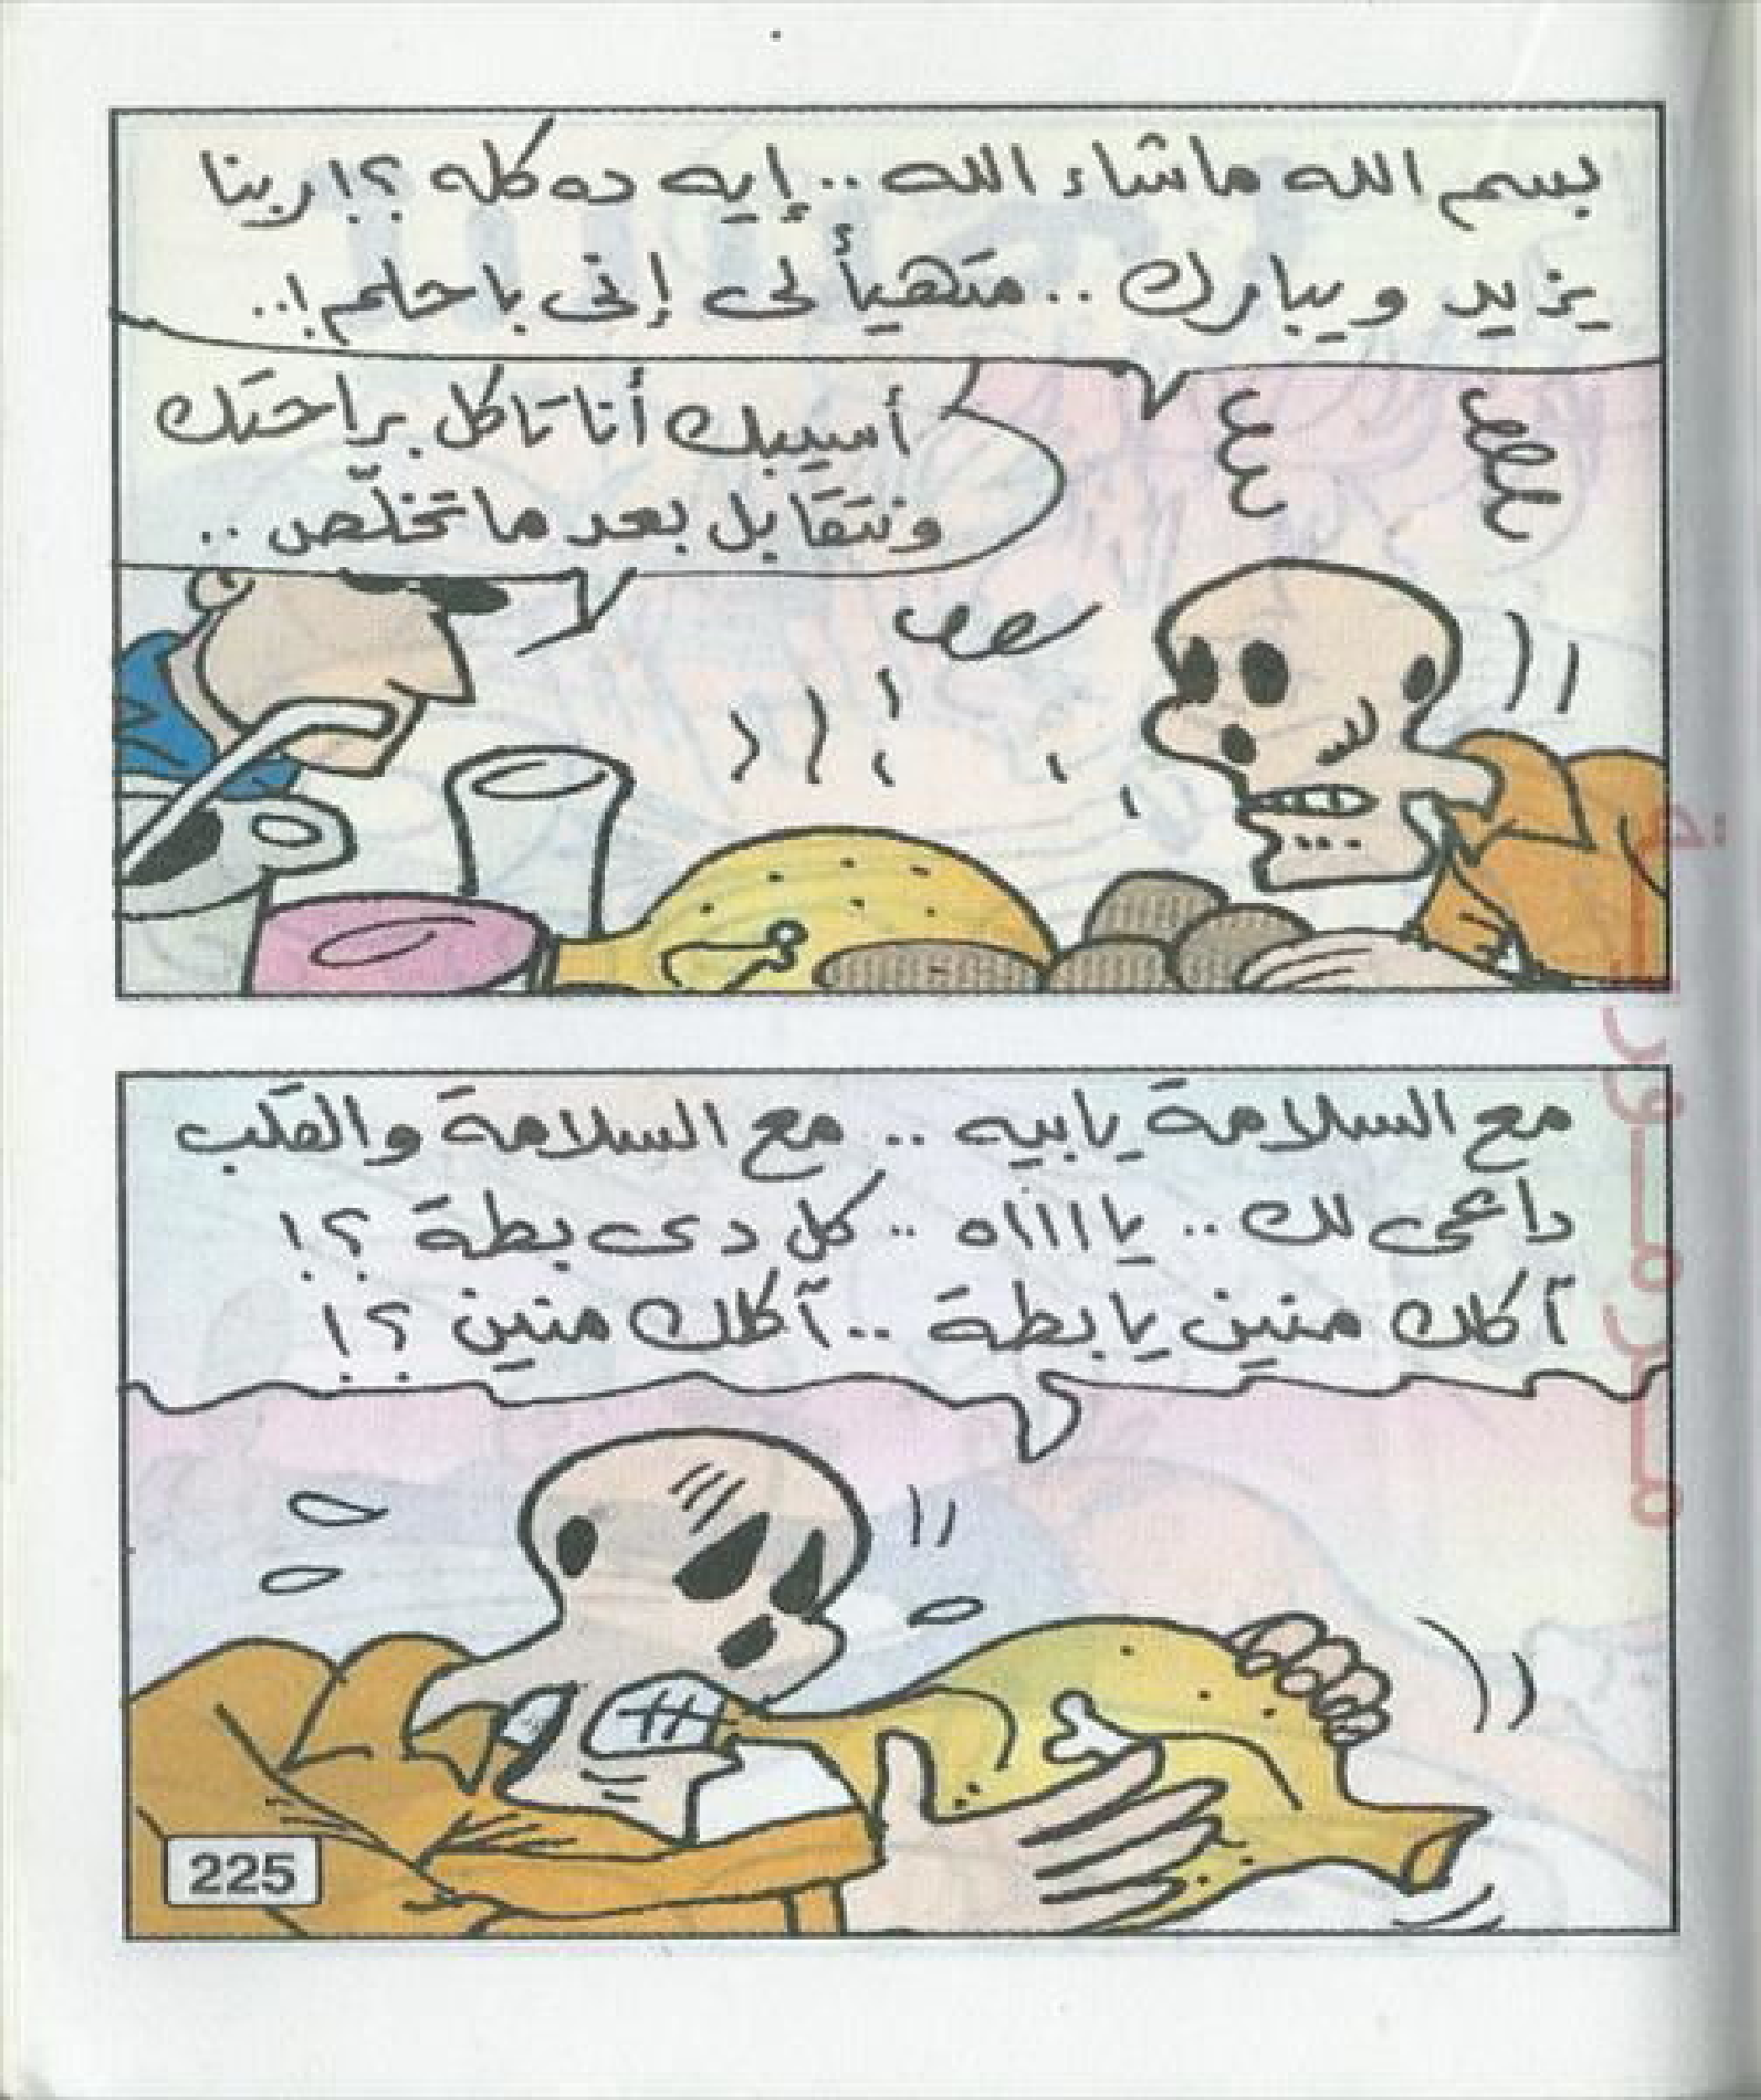 بسم الله ماشاء الله .. إيه ده كله ؟! ربنا
يزيد ويبارك .. متهيأ لى إنى باحلم !..
أسيبك أنا تاكل براحتك
ونتقابل بعد ما تخلّص ..
مع السلامة يابيه .. مع السلامة والقلب
داعى لك .. ياااااه .. كل دى بطة ؟!
آكلك منين يا بطة .. آكلك منين ؟!
225